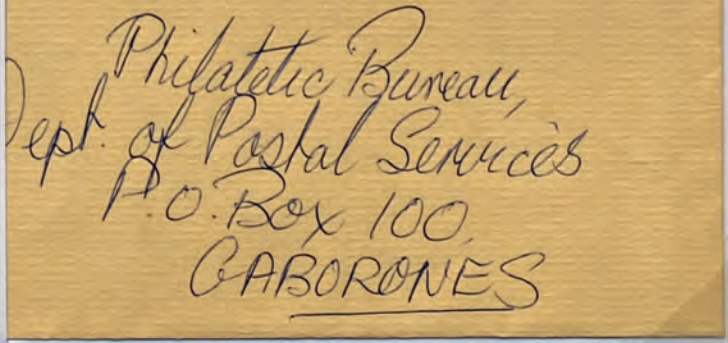 Philatelic Bureau,
Dept. of Postal Services
P.O. Box 100,
GABORONES